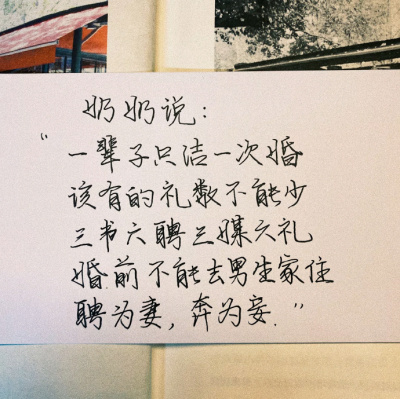 奶奶说：
“一辈子只洁一次婚
该有的礼数不能少
三书六聘三媒六礼
婚前不能去男生家住
聘为妻，奔为妾.”